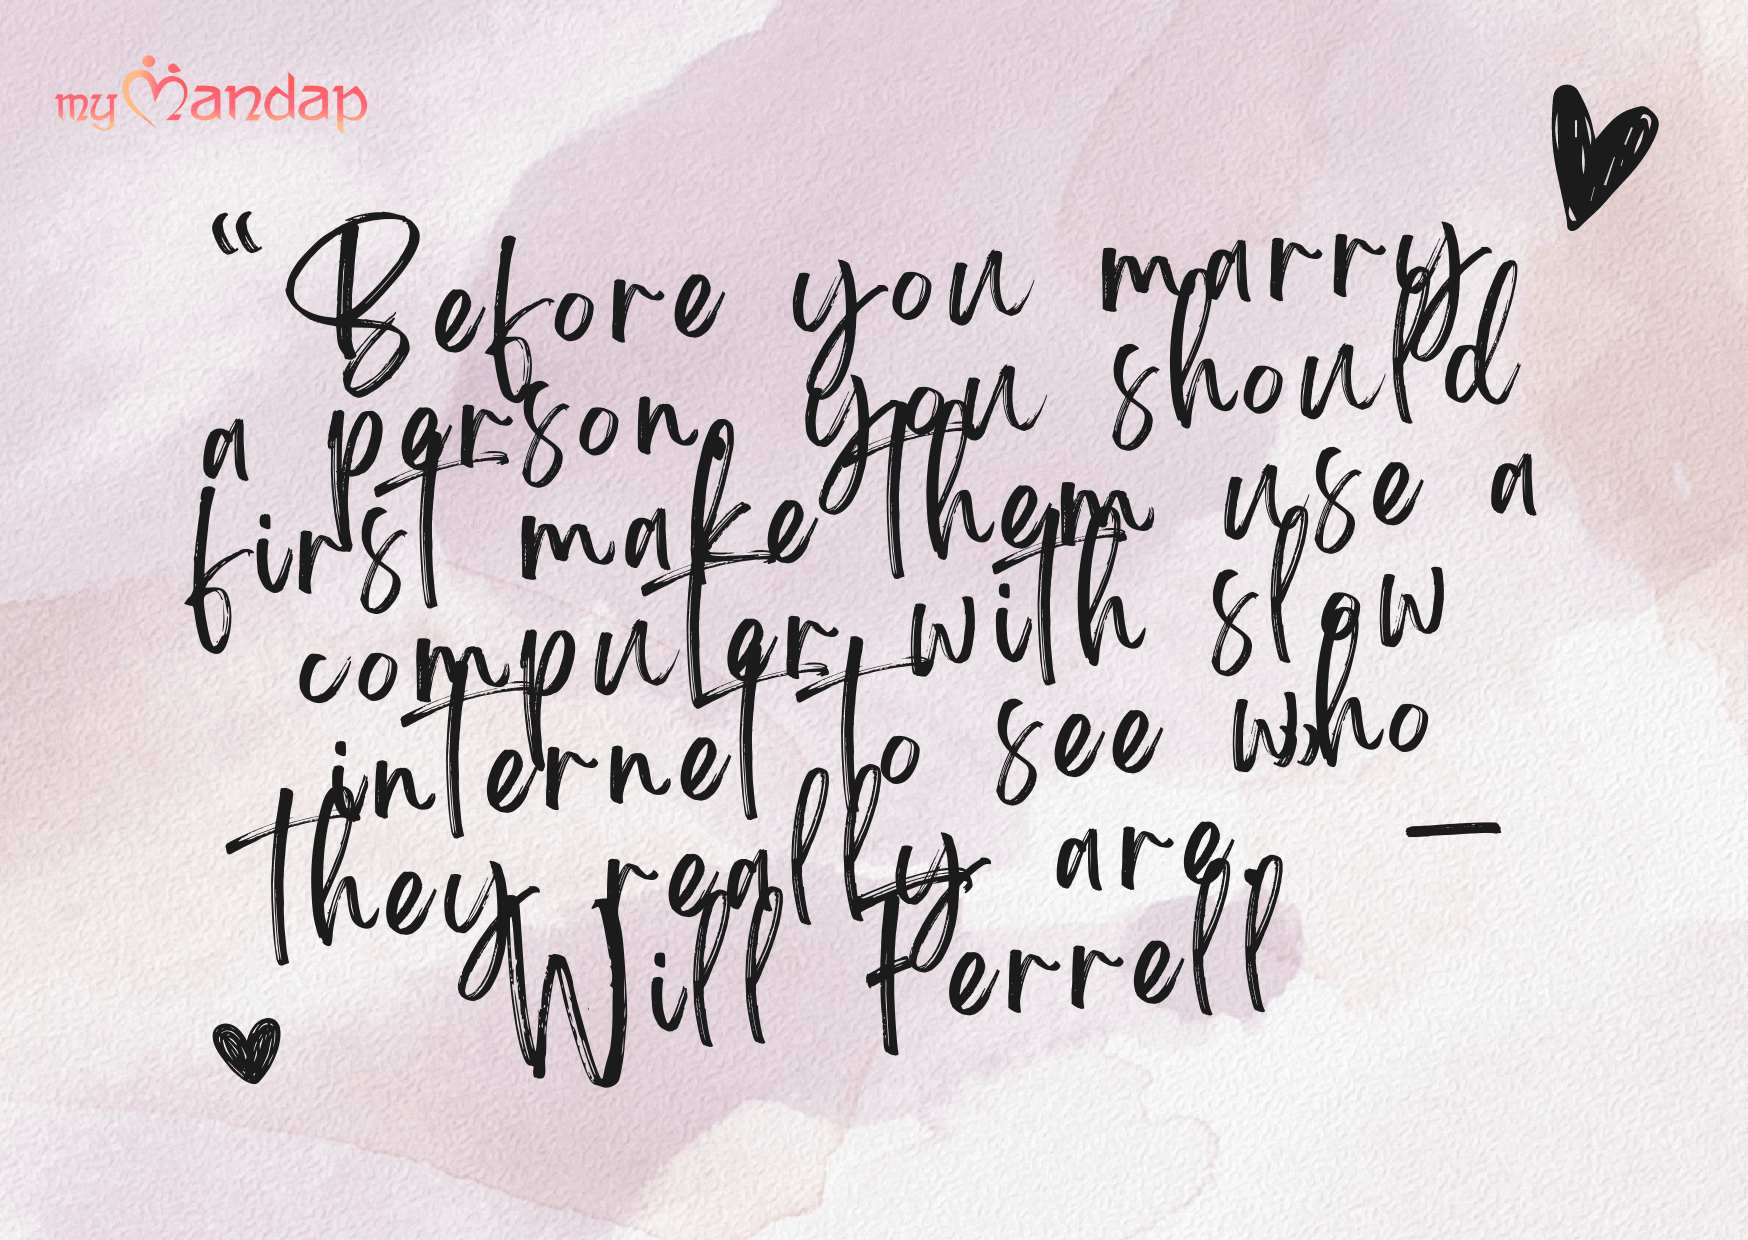 my Mandap
“Before you marry
a person, you should
first make them use a
computer with slow
internet to see who
they really are.” —
Will Ferrell